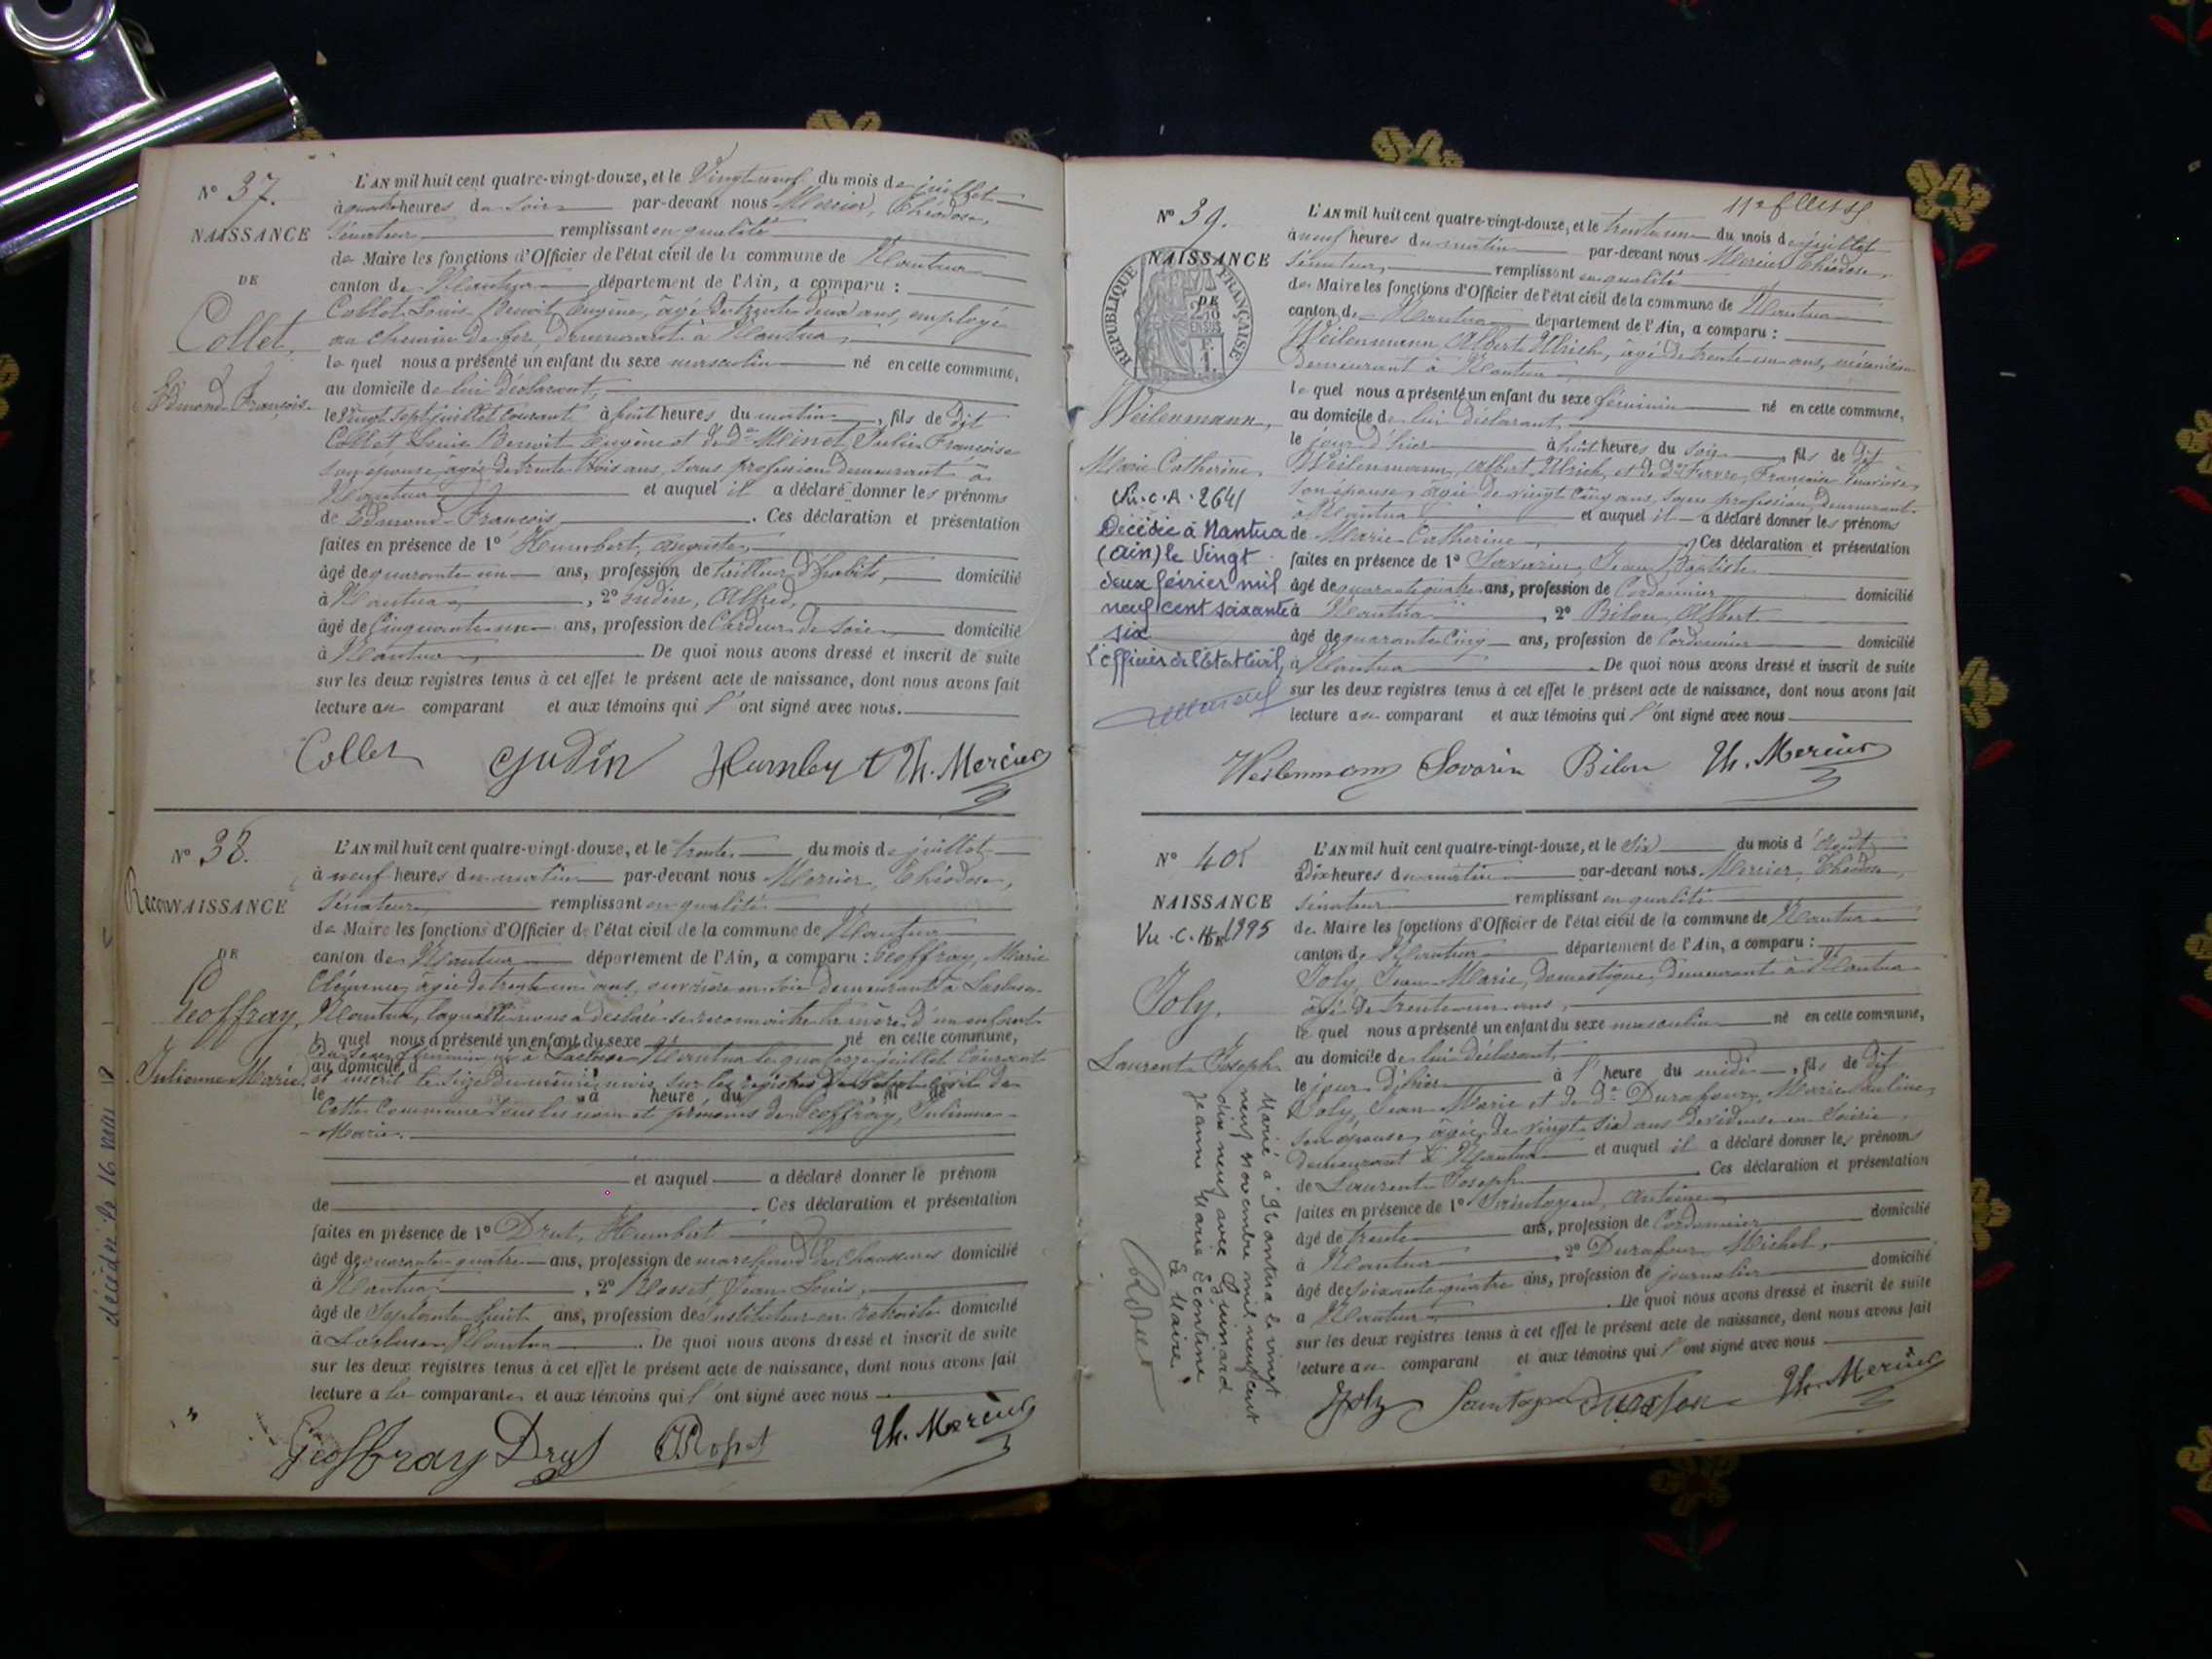 N° 37.
NAISSANCE
DE
Collet,
Edmond François.
L'AN mil huit cent quatre-vingt-douze, et le Vingt neuf du mois de juillet
à quatre heures du soir par-devant nous Mercier, Théodore,
Sénateur remplissant en qualité
de Maire les fonctions d'Officier de l'état civil de la commune de Nantua
canton de Nantua département de l'Ain, a comparu :
Collet Louis Benoit Eugène, âgé de trente deux ans, employé
au chemin de fer, demeurant à Nantua,
le quel nous a présenté un enfant du sexe masculin né en cette commune,
au domicile de lui déclarant,
le vingt sept juillet courant à huit heures du matin, fils de dit
Collet Louis Benoit Eugène et de De Minet Julie Françoise
son épouse, âgée de trente trois ans, sans profession demeurant à
Nantua et auquel il a déclaré donner les prénoms
de Edmond-François. Ces déclaration et présentation
faites en présence de 1° Humbert, Auguste,
âgé de quarante un ans, profession de tailleur d'habits, domicilié
à Nantua, 2° Gudin, Alfred,
âgé de Cinquante un ans, profession de Cardeur de soie domicilié
à Nantua. De quoi nous avons dressé et inscrit de suite
sur les deux registres tenus à cet effet le présent acte de naissance, dont nous avons fait
lecture au comparant et aux témoins qui l'ont signé avec nous.
Collet Gudin Humbert Th. Mercier
N° 38.
ReconNAISSANCE
DE
Geoffray,
Julienne Marie.
décédée le 16 mai
L'AN mil huit cent quatre-vingt-douze, et le trente du mois de juillet
à neuf heures du matin par-devant nous Mercier, Théodore,
Sénateur remplissant en qualité
de Maire les fonctions d'Officier de l'état civil de la commune de Nantua
canton de Nantua département de l'Ain, a comparu : Geoffray, Marie
Clémence, âgée de trente un ans, ouvrière en soie demeurant à
Nantua, laquelle nous a déclaré se reconnaitre la mère d'un enfant
le quel nous a présenté un enfant du sexe né en cette commune,
du sexe féminin né à Nantua le quatorze juillet courant
au domicile d
et inscrit le seize du même mois sur les registres de l'état civil de
le à heure du fil de
cette commune sous les nom et prénoms de Geoffray, Julienne-
Marie.
et auquel a déclaré donner le prénom
de . Ces déclaration et présentation
faites en présence de 1° Drut, Humbert
âgé de quarante quatre ans, profession de marchand de chaussures domicilié
à Nantua, 2° Rosset Jean Louis,
âgé de Septante huit ans, profession de Instituteur en retraite domicilié
à Nantua. De quoi nous avons dressé et inscrit de suite
sur les deux registres tenus à cet effet le présent acte de naissance, dont nous avons fait
lecture a la comparante et aux témoins qui l'ont signé avec nous
Geoffray Drut Rosset Th. Mercier
N° 39.
NAISSANCE
DE
REPUBLIQUE FRANÇAISE
Weilenmann,
Marie Catherine.
Vu. C. A. 2641
Décédée à Nantua
(Ain) le Vingt
deux février mil
neuf cent soixante
six
L'officier de l'Etat Civil,
L'AN mil huit cent quatre-vingt-douze, et le trente un du mois de juillet
à neuf heures du matin par-devant nous Mercier Théodore,
Sénateur, remplissant en qualité
de Maire les fonctions d'Officier de l'état civil de la commune de Nantua
canton de Nantua département de l'Ain, a comparu :
Weilenmann Albert Ulrich, âgé de trente un ans, mécanicien
demeurant à Nantua
le quel nous a présenté un enfant du sexe féminin né en cette commune,
au domicile de lui déclarant
le jour d'hier à huit heures du soir, fils de dit
Weilenmann, Albert Ulrich, et de De Favre, Françoise
son épouse, âgée de vingt cinq ans, sans profession, demeurant
à Nantua et auquel il a déclaré donner les prénoms
de Marie Catherine, Ces déclaration et présentation
faites en présence de 1° Savarin, Jean Baptiste
âgé de quarante quatre ans, profession de Cordonnier domicilié
à Nantua, 2° Bilon, Albert
âgé de quarante Cinq ans, profession de Cordonnier domicilié
à Nantua. De quoi nous avons dressé et inscrit de suite
sur les deux registres tenus à cet effet le présent acte de naissance, dont nous avons fait
lecture au comparant et aux témoins qui l'ont signé avec nous
Weilenmann Savarin Bilon Th. Mercier
N° 40
NAISSANCE
DE
Vu. C. A. 1995
Joly.
Laurent Joseph
Marié à Nantua le vingt
neuf novembre mil neuf cent
dix neuf avec Guinard
Jeanne Marie Léontine
Le Maire
L'AN mil huit cent quatre-vingt-douze, et le six du mois d'Août
à Dix heures du matin par-devant nous Mercier, Théodore,
sénateur remplissant en qualité
de Maire les fonctions d'Officier de l'état civil de la commune de Nantua
canton de Nantua département de l'Ain, a comparu :
Joly, Jean Marie, domestique, demeurant à Nantua
âgé de trente un ans,
le quel nous a présenté un enfant du sexe masculin né en cette commune,
au domicile de lui déclarant,
le jour d'hier à l'heure du midi, fils de dit
Joly, Jean Marie et de De Durafour, Marie Pauline,
son épouse, âgée de vingt six ans dévideuse en soierie,
demeurant à Nantua et auquel il a déclaré donner les prénoms
de Laurent Joseph. Ces déclaration et présentation
faites en présence de 1° Saintoyen, Antoine
âgé de trente ans, profession de Cordonnier domicilié
à Nantua, 2° Durafour Michel,
âgé de soixante quatre ans, profession de journalier domicilié
à Nantua. De quoi nous avons dressé et inscrit de suite
sur les deux registres tenus à cet effet le présent acte de naissance, dont nous avons fait
lecture au comparant et aux témoins qui l'ont signé avec nous
Joly Durafour Th. Mercier